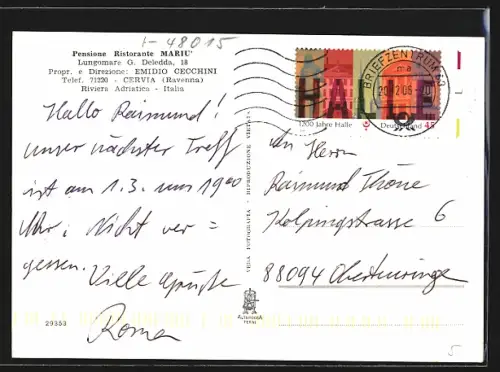 t-48015
Pensione Ristorante MARIU'
Lungomare G. Deledda, 18
Propr. e Direzione: EMIDIO CECCHINI
Telef. 71220 - CERVIA (Ravenna)
Riviera Adriatica - Italia
Hallo Raimund!
unser nächster Treff
ist am 1.3. um 19⁰⁰
Uhr; Nicht ver=
gessen.
Viele Grüße
Roma
29353
VEGA FOTOGRAFIA - RIPRODUZIONE VIETATA
ALTEROCCA
TERNI
BRIEFZENTRUM
HALLE
1200 Jahre Halle
Deutschland 45
An Herrn
Raimund Thöne
Kolpingstrasse 6
88094 Oberteuringen
5